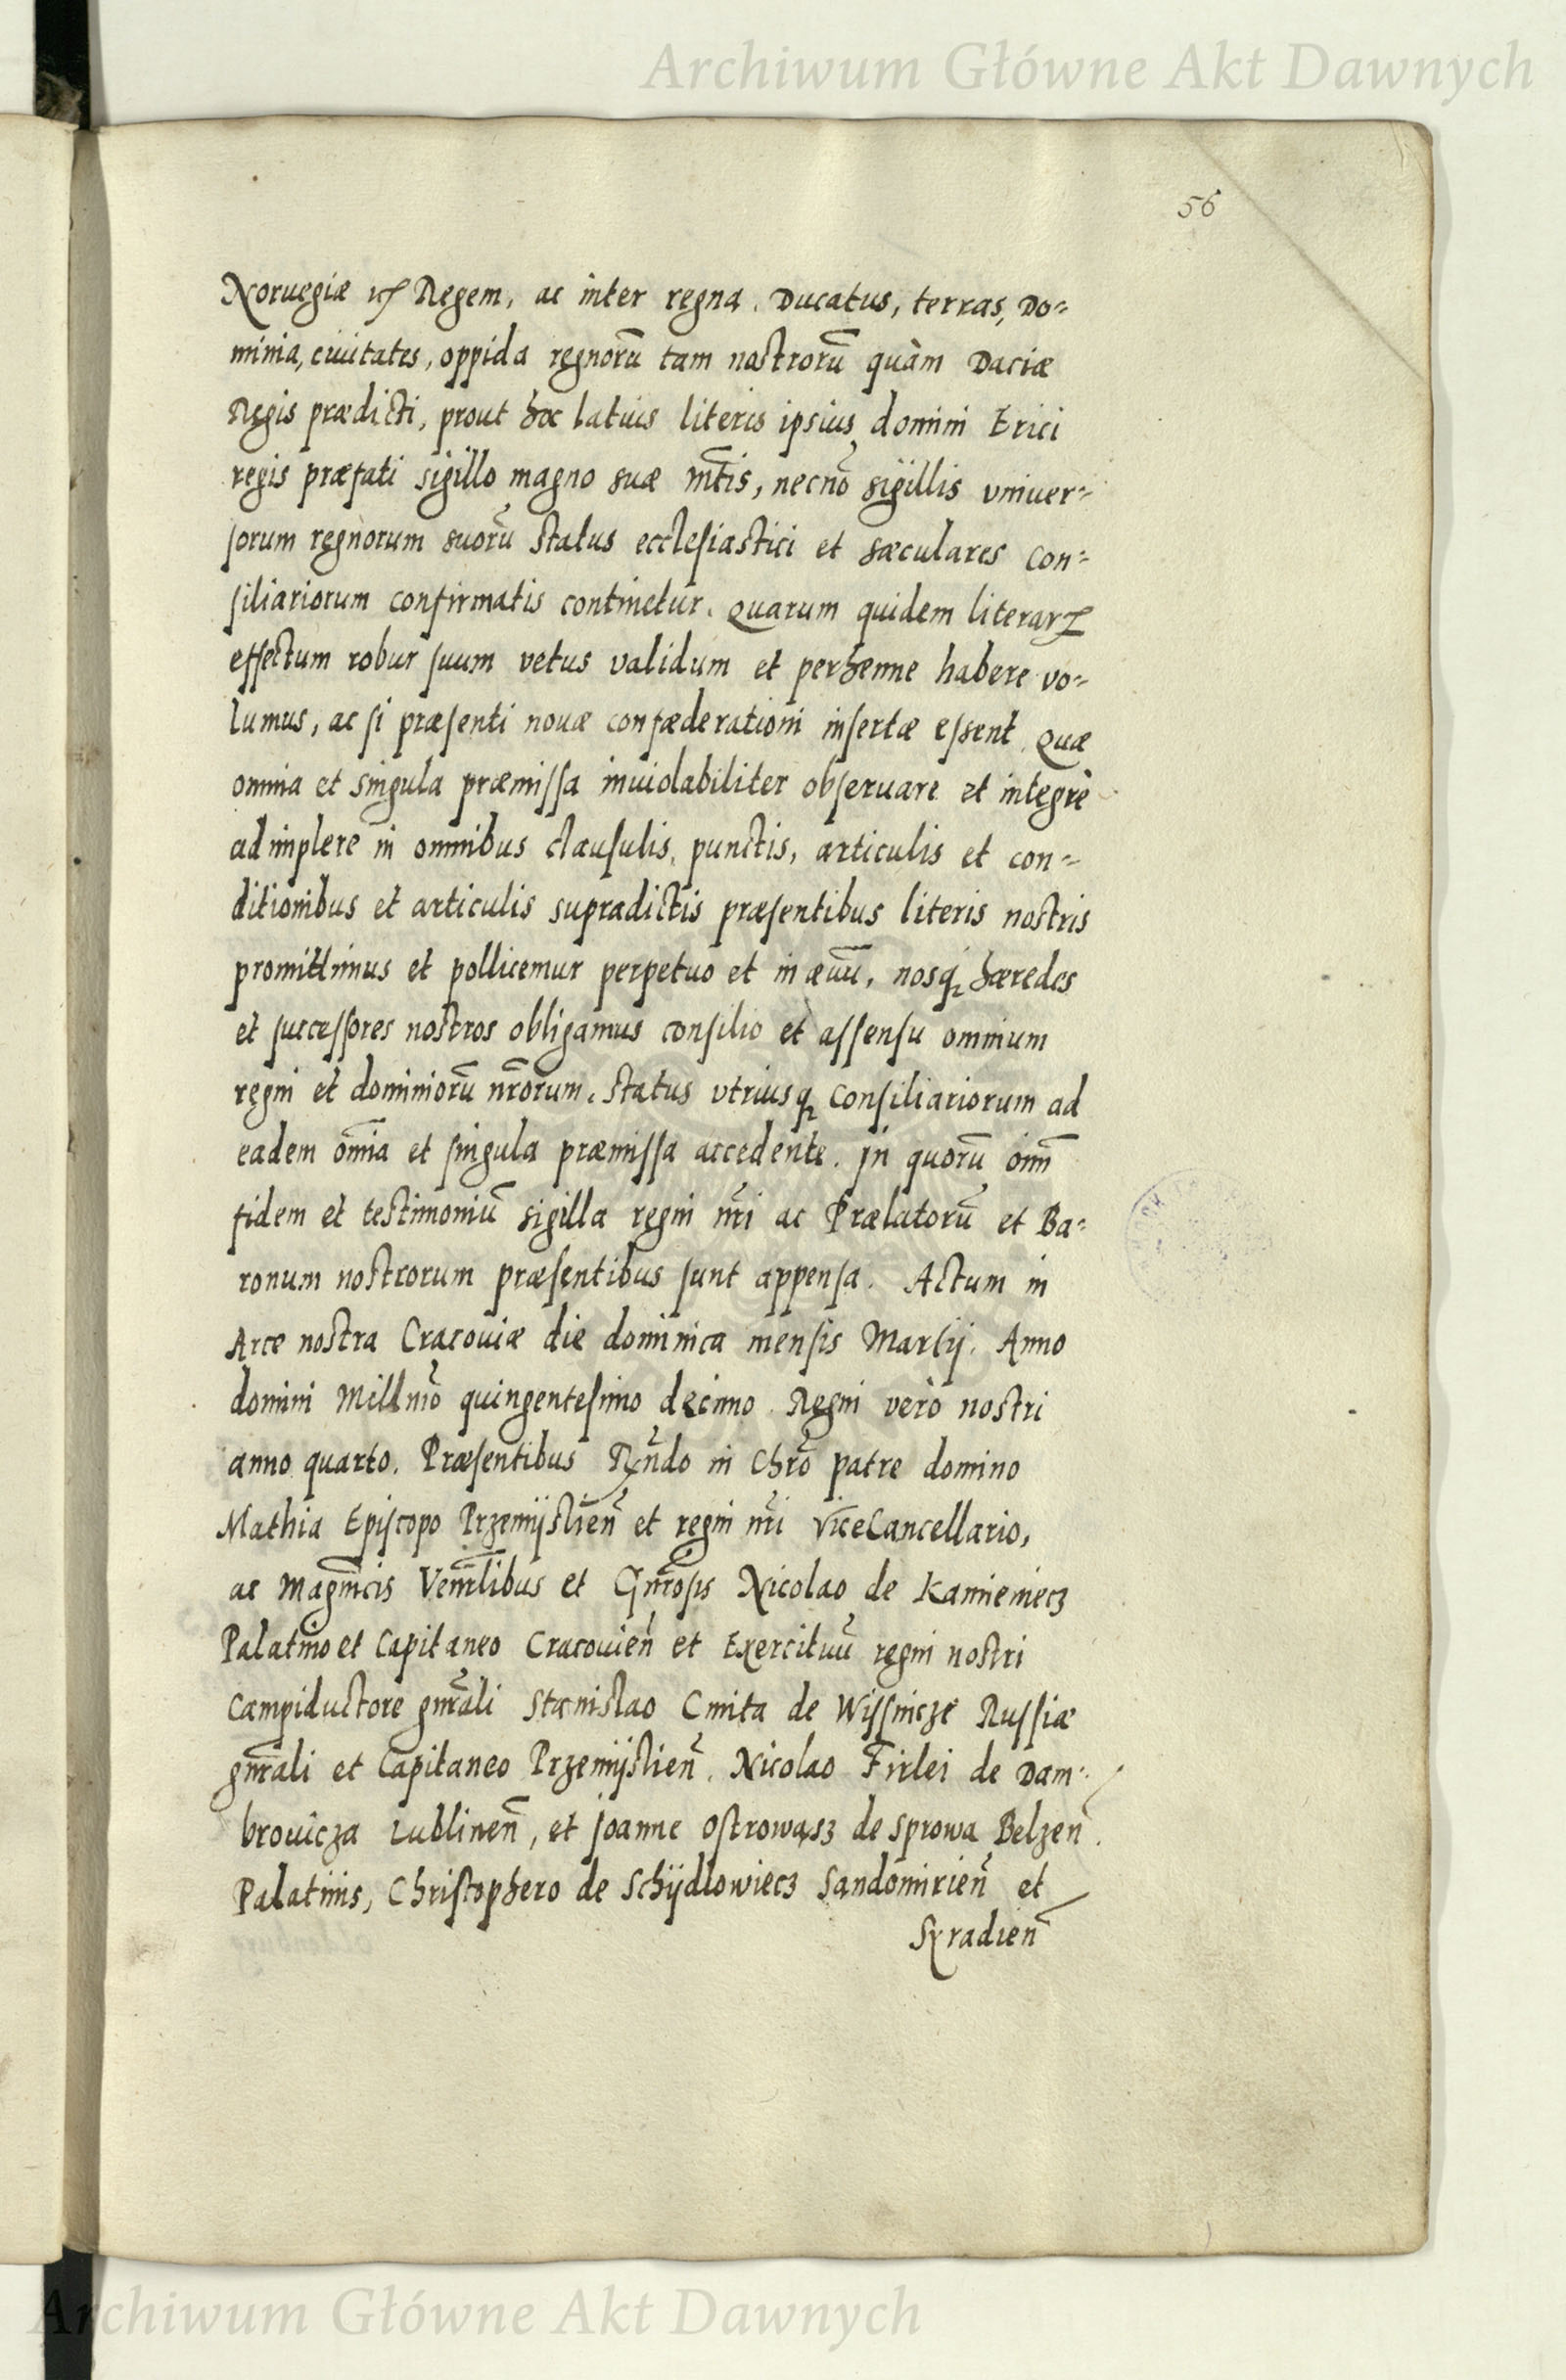 Archiwum Główne Akt Dawnych
56
Noruegiæ Regem, ac inter regna, Ducatus, terras, Do=
minia, ciuitates, oppida regnorũ tam nostrorũ quàm Daciæ
Regis prædicti, prout hoc latius literis ipsius domini Erici
regis præfati sigillo magno suæ Mt̃is, necnõ sigillis vniuer=
sorum regnorum suorũ status ecclesiastici et sæculares con=
siliariorum confirmatis continetur. Quarum quidem literarꝝ
effectum robur suum vetus validum et perhenne habere vo=
lumus, ac si præsenti nouæ confæderationi insertæ essent. Quæ
omnia et singula præmissa inuiolabiliter obseruare et integrè
adimplere in omnibus clausulis, punctis, articulis et con=
ditionibus et articulis supradictis præsentibus literis nostris
promittimus et pollicemur perpetuo et in æuũ, nosq̃ hæredes
et successores nostros obligamus consilio et assensu omnium
regni et dominiorũ nr̃orum. Status vtriusq̃ Consiliariorum ad
eadem om̃ia et singula præmissa accedente. In quorũ om̃
fidem et testimoniũ sigilla regni nr̃i ac Prælatorũ et Ba=
ronum nostrorum præsentibus sunt appensa. Actum in
Arce nostra Cracouiæ die dominica mensis Martij. Anno
domini Millm̃o quingentesimo decimo. Regni verò nostri
anno quarto. Præsentibus Rñdo in Chrõ patre domino
Mathia Episcopo Przemijslieñ et regni nr̃i ViceCancellario,
ac Magñcis Veñlibus et Gñrosis Nicolao de Kamieniecz
Palatino et Capitaneo Cracouieñ et Exercituũ regni nostri
Campiductore gñrali Stanislao Cmita de Wissnicze Russiæ
gñrali et Capitaneo Przemijslieñ. Nicolao Firlei de Dam=
brouicza Lublineñ, et Joanne Ostrowasz de Sprowa Belzeñ.
Palatinis, Christophero de Schijdlowiecz Sandomirieñ et
Syradieñ
Archiwum Główne Akt Dawnych